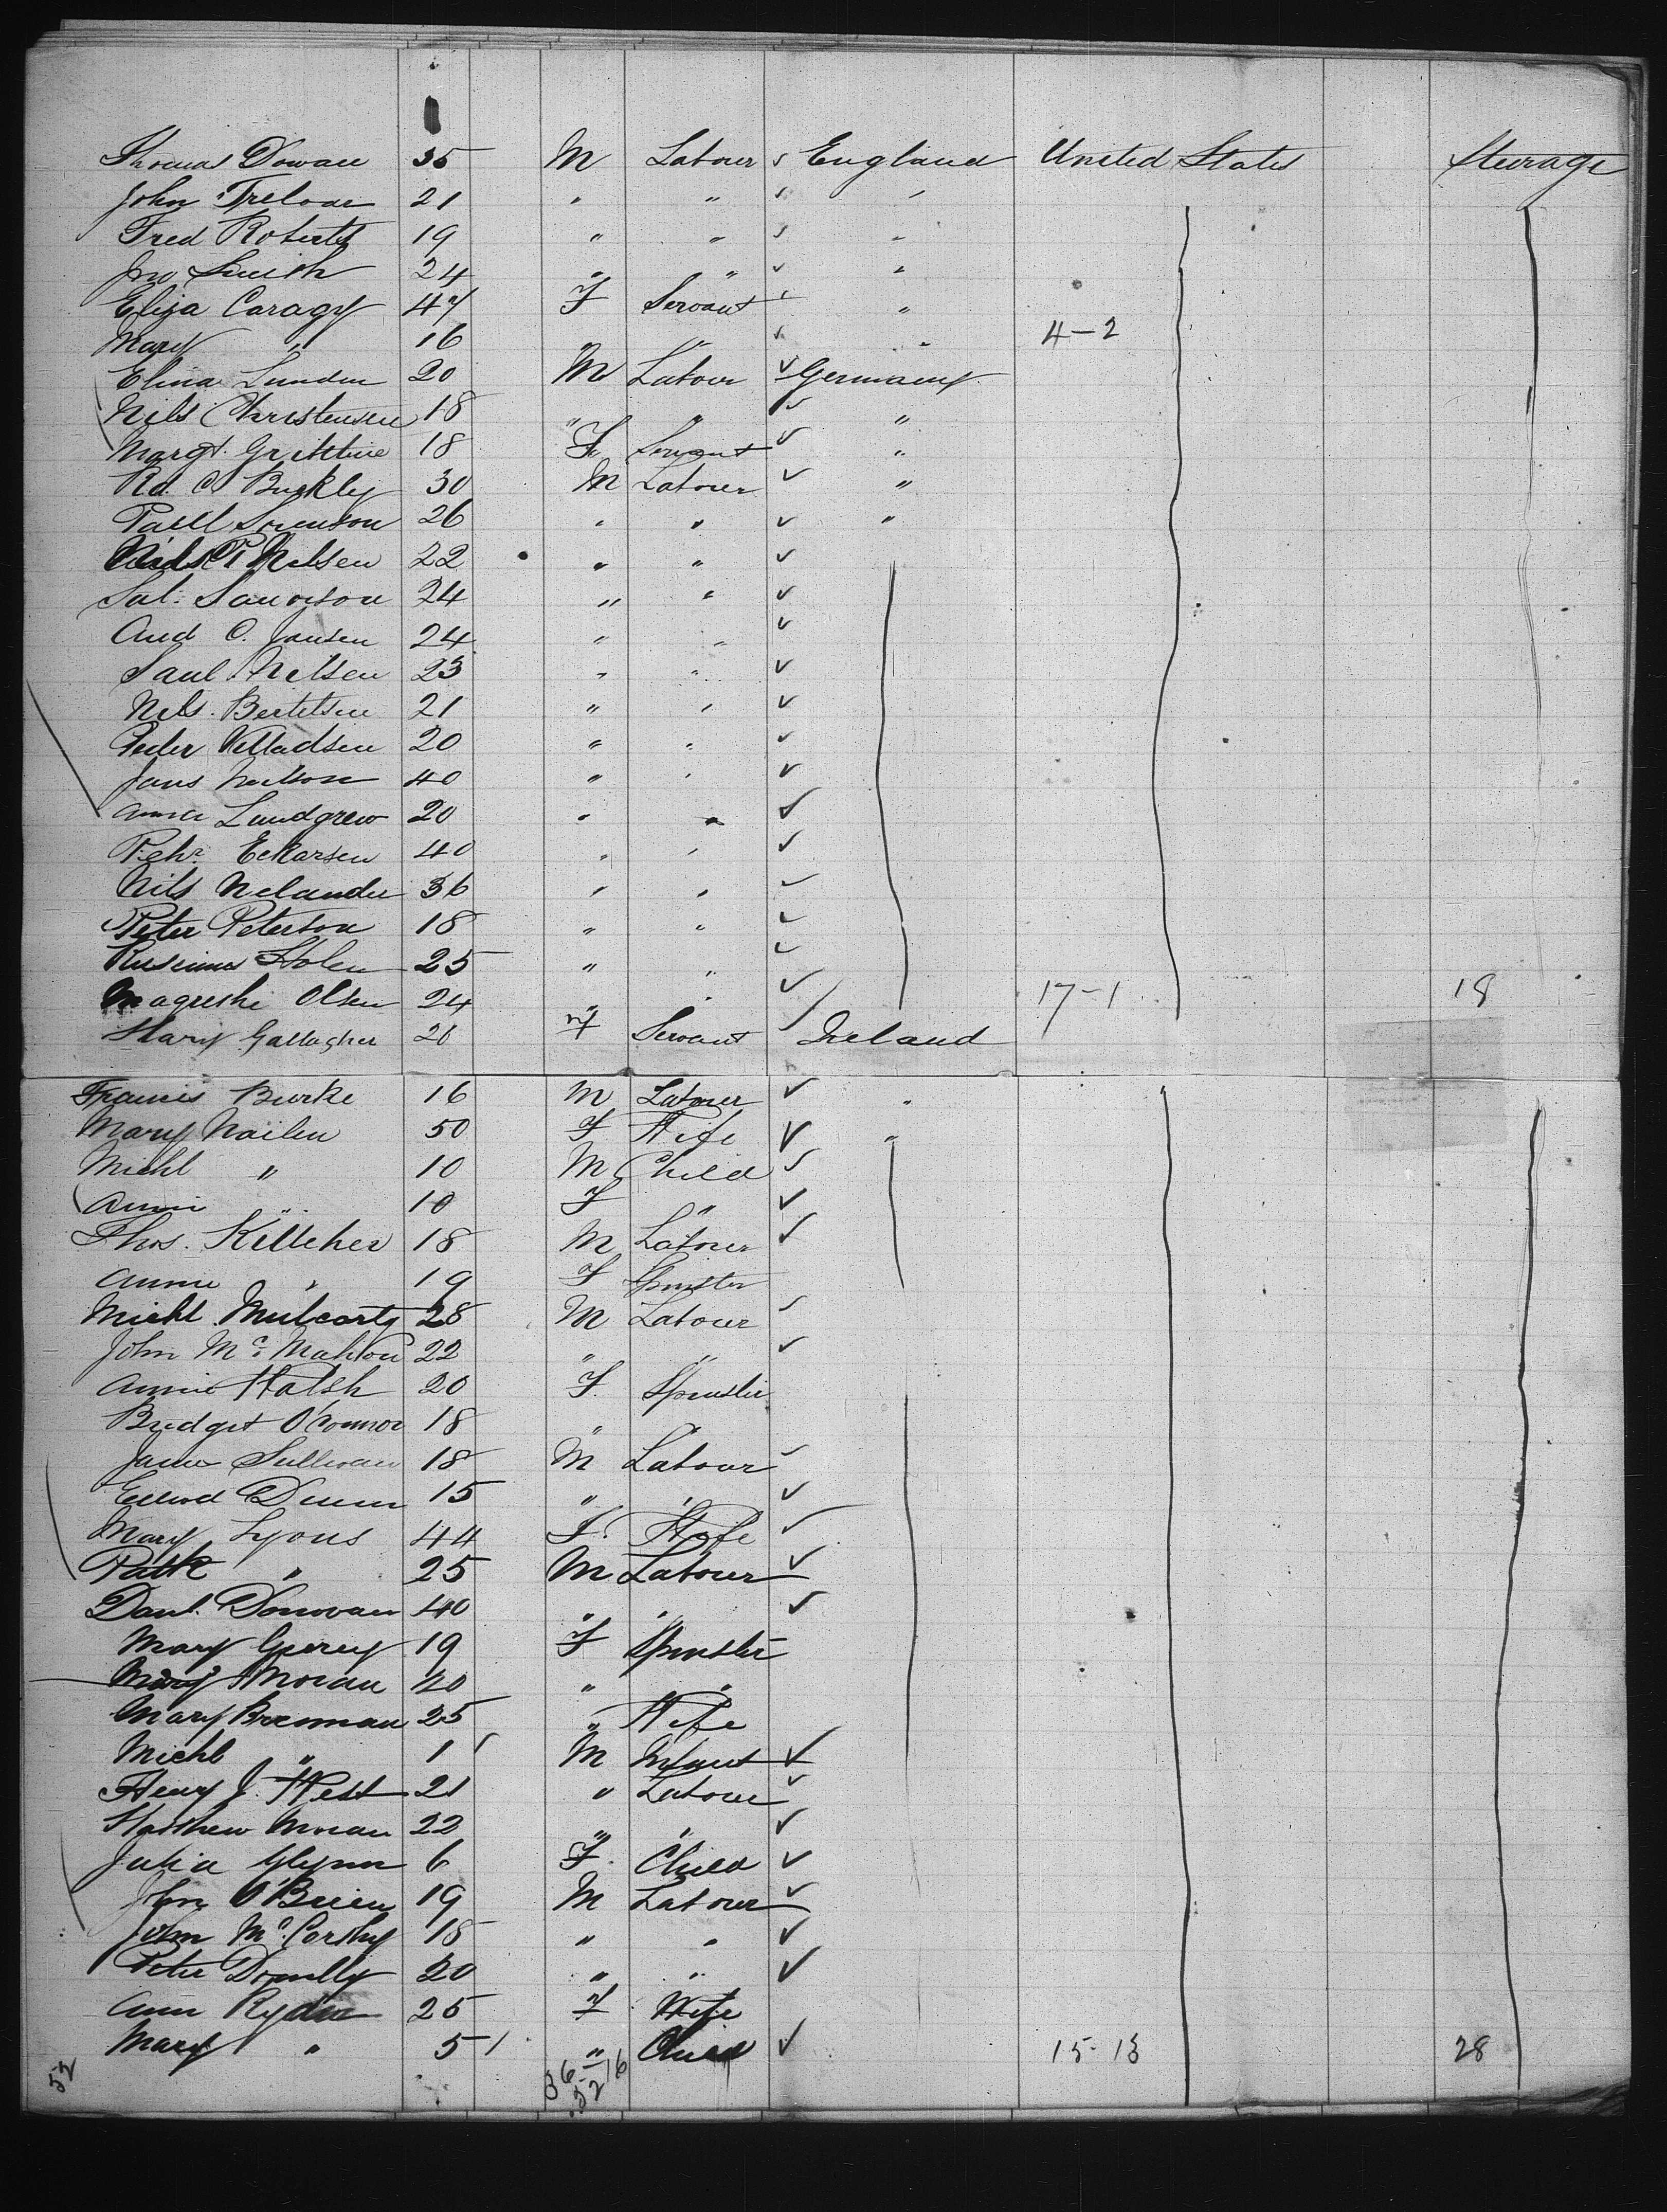 Thomas Dowan 35 M Labour England United States Steerage
John Treloar 21 " " "
Fred Roberts 19 " " "
Jno Smith 24 " " "
Eliza Caragy 47 F Servant "
Mary " 16 " " " 4-2
Elina Lunden 20 M Labour Germany
Nils Christensen 18 " " "
Margt. 18 F Servant "
Rd. C Buckley 30 M Labour "
Paell Sorenson 26 " " "
Nils P Nelsen 22 " "
Sal: 24 " "
And O. Jansen 24 " "
Saul Nelsen 23 " "
Nels. Bertelsen 21 " "
Peder Velladsen 20 " "
Jans Neilson 40 " "
Anna Lundgrew 20 " "
Pehr Eckarsen 40 " "
Nils Nelander 36 " "
Peter Peterson 18 " "
Stolen 25 " "
Olsen 24 " " 17-1 18
Mary Gallagher 26 F Servant Ireland
Francis Burke 16 M Labour "
Mary Nailen 50 F Wife "
Michl " 10 M Child
Annie " 10 F "
Thos. Killeher 18 M Labour
Annie " 19 F Spinster
Michl Mulcarty 28 M Labour
John Mc Mahon 22 " "
Annie Walsh 20 F. Spinster
Bridget O'Connor 18 " "
James Sullivan 18 M Labour
Edwd Dunn 15 " "
Mary Lyons 44 F. Wife
Patk " 25 M Labour
Danl. Donovan 40 " "
Mary 19 F Spinster
Mary Moran 20 " "
Mary Brennan 25 " Wife
Michl " 1 M Infant
Henry J. West 21 " Labour
Matthew Moran 22 " "
Julia Glynn 6 F. Child
John O'Brien 19 M Labour
John Mc Carthy 18 " "
Peter Donnelly 20 " "
Ann Ryder 25 F Wife
Mary " 5 " Child 15-13 28
52 36-16
52